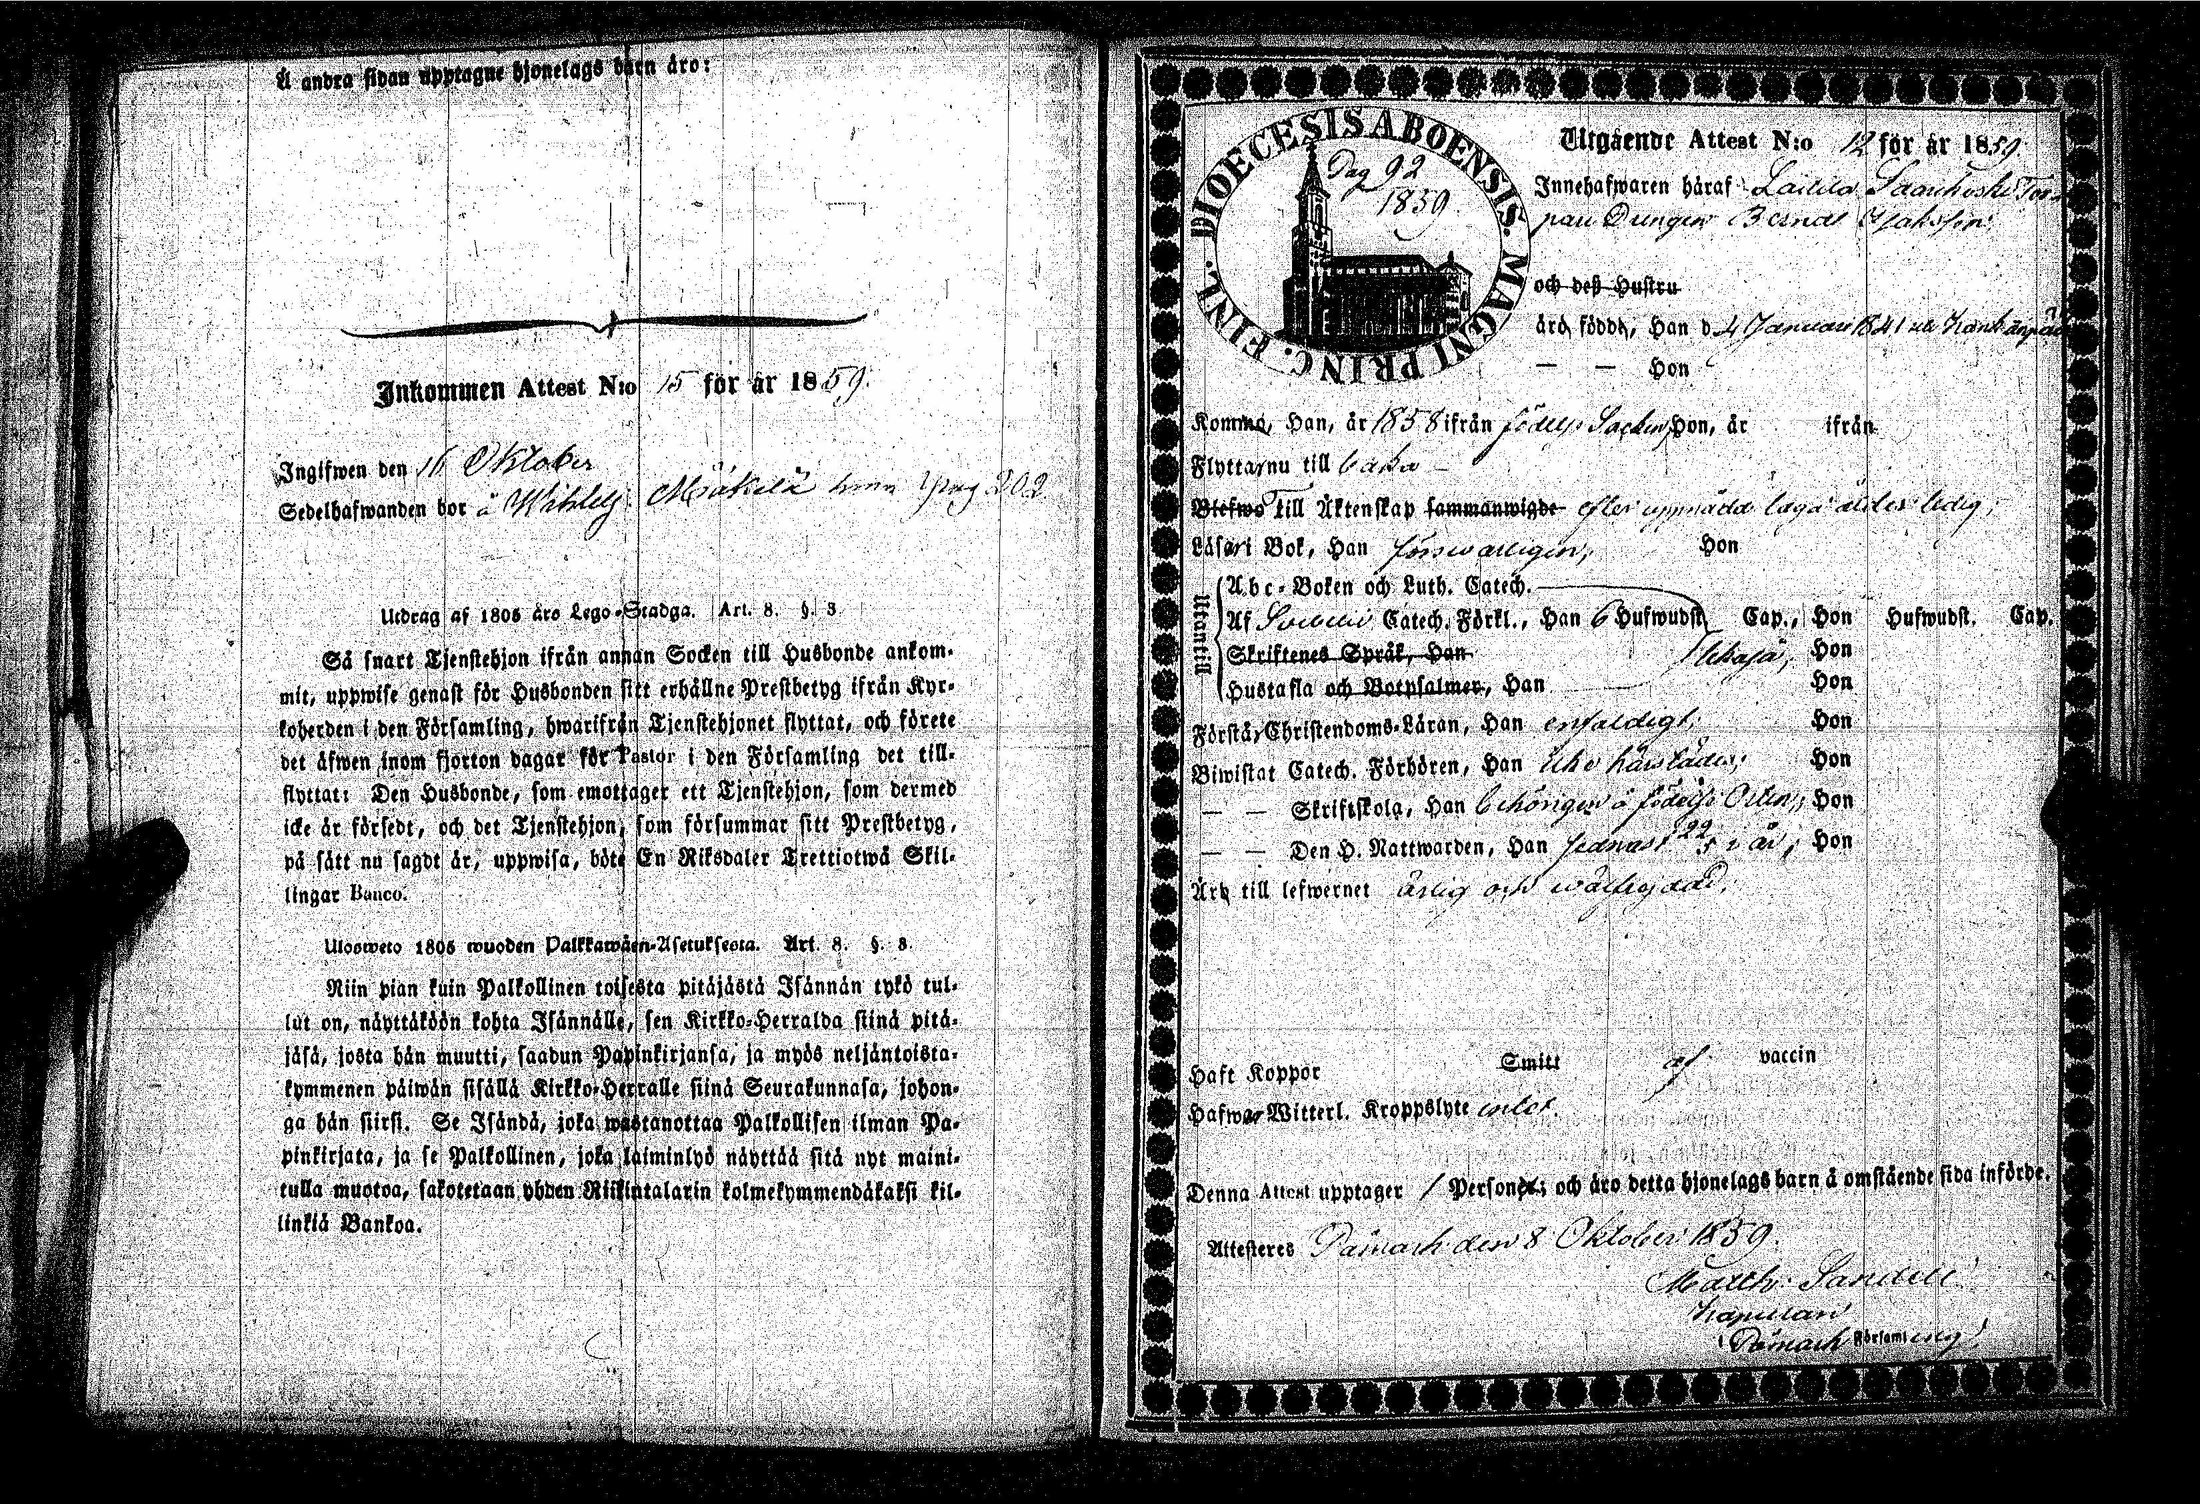 Å andra sidan upptagne hjonelags barn äro:
Inkommen Attest N:o 15 för år 1859.
Ingifwen den 16 Oktober
Sedelhafwanden bor å Mäkelä pag 202
Utdrag af 1805 års Lego-Stadga. Art. 8. §. 3.
Så snart Tjenstehjon ifrån annan Socken till Husbonde ankom-
mit, uppwise genast för Husbonden sitt erhållne Prestbetyg ifrån Kyr-
koherden i den Församling, hwarifrån Tjenstehjonet flyttat, och förete
det äfwen inom fjorton dagar för Pastor i den Församling det till-
flyttat: Den Husbonde, som emottager ett Tjenstehjon, som dermed
icke är försedt, och det Tjenstehjon, som försummar sitt Prestbetyg,
på sätt nu sagdt är, uppwisa, böte En Riksdaler Trettiotwå Skil-
lingar Banco.
Ulosweto 1805 wuoden Palkkawäen-Asetuksesta. Art. 8. §. 3.
Niin pian kuin Palkollinen toisesta pitäjästä Isännän tykö tul-
lut on, näyttäköön kohta Isännälle, sen Kirkko-Herralda siinä pitä-
jäsä, josta hän muutti, saadun Papinkirjansa, ja myös neljäntoista-
kymmenen päiwän sisällä Kirkko-Herralle siinä Seurakunnasa, johon-
ga hän siirsi. Se Isändä, joka wastanottaa Palkollisen ilman Pa-
pinkirjata, ja se Palkollinen, joka laiminlyö näyttää sitä nyt maini-
tulla muotoa, sakotetaan yhden Riikintalarin kolmekymmendäkaksi kil-
linkiä Bankoa.
DIOECESIS ABOENSIS. MAGNI PRINC. FINL.
Pag 92
1859
Utgående Attest N:o 12 för år 1859.
Innehafwaren häraf Laitila
Drängen Berndt Isaksson
och deß Hustru
äro födde, Han d. 4 Januari 1841 uti
— — Hon
Komma, Han, år 1858 ifrån födelse Socken, Hon, år ifrån
Flytta nu till
Blefwo Till Äktenskap sammanwigde efter uppnådd laga ålder ledig,
Läsa i Bok, Han förswarligen, Hon
Utantill
Abc-Boken och Luth. Catech.
Af Catech. Förkl., Han 6 Hufwudst. Cap., Hon Hufwudst. Cap.
Skriftenes Språk, Han Hon
Hustafla och Botpsalmer, Han Hon
Förstå Christendoms-Läran, Han enfaldigt, Hon
Biwistat Catech. Förhören, Han icke härstädes, Hon
— — Skriftskola, Han behörigen å födelse Orten, Hon
— — Den H. Nattwarden, Han senast 22/5 i år, Hon
Äro till lefwernet ärlig och wälfrejdad.
Haft Koppor Smitt af vaccin
Hafwa Witterl. Kroppslyte intet.
Denna Attest upptager 1 Person; och äro detta hjonelags barn å omstående sida införde.
Attesteres Påmark den 8 Oktober 1859.
Matth. Sandell
Kapellan
i Påmark Församling.